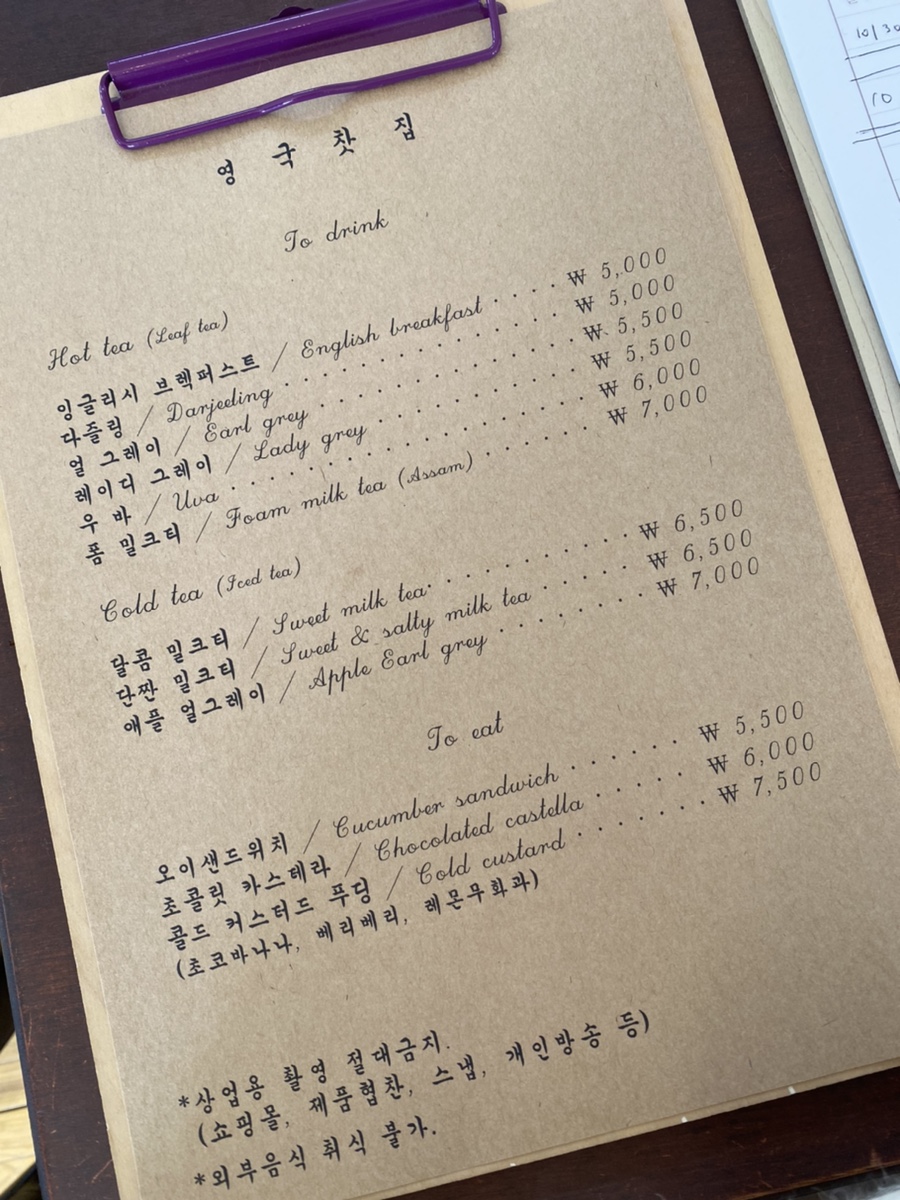 영 국 찻 집
To drink
Hot tea (Leaf tea)
잉글리시 브렉퍼스트 / English breakfast ···· ₩ 5,000
다즐링 / Darjeeling ·············· ₩ 5,000
얼 그레이 / Earl grey ·············· ₩ 5,500
레이디 그레이 / Lady grey ·········· ₩ 5,500
우 바 / Uva ·················· ₩ 6,000
폼 밀크티 / Foam milk tea (Assam) ······ ₩ 7,000
Cold tea (Iced tea)
달콤 밀크티 / Sweet milk tea ··········· ₩ 6,500
단짠 밀크티 / Sweet & salty milk tea ······ ₩ 6,500
애플 얼그레이 / Apple Earl grey ········ ₩ 7,000
To eat
오이샌드위치 / Cucumber sandwich ······ ₩ 5,500
초콜릿 카스테라 / Chocolated castella ····· ₩ 6,000
콜드 커스터드 푸딩 / Cold custard ······· ₩ 7,500
(초코바나나, 베리베리, 레몬무화과)
*상업용 촬영 절대금지.
(쇼핑몰, 제품협찬, 스냅, 개인방송 등)
*외부음식 취식 불가.
10/30
10